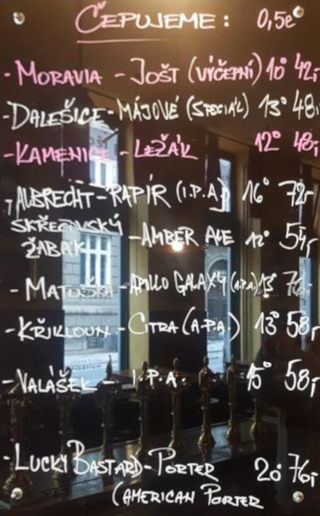 ČEPUJEME: 0,5ℓ
- MORAVIA - JOŠT (VÝČEPNÍ) 10° 42,-
- DALEŠICE - MÁJOVÉ (SPECIÁL) 13° 48,-
- KAMENICE - LEŽÁK 12° 48,-
- ALBRECHT - RAPÍR (I.P.A.) 16° 72,-
SKŘEČOŇSKÝ
ŽABÁK - AMBER ALE 12° 54,-
- MATUŠKA - APOLLO GALAXY (A.P.A.) 13°
- KŘIKLOUN - CITRA (A.P.A.) 13° 58,-
- VALÁŠEK - I.P.A. 15° 58,-
- LUCKY BASTARD - PORTER 20° 76,-
(AMERICAN PORTER